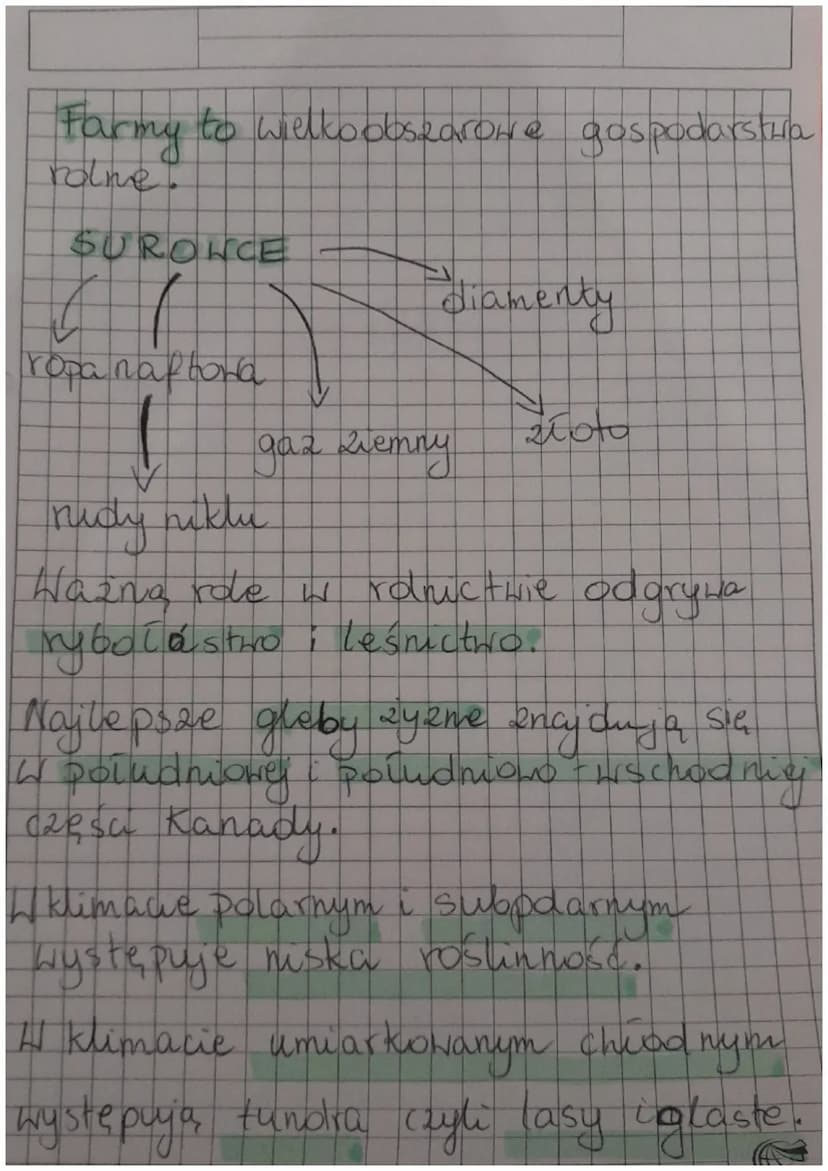 Farmy to wielkoobszarowe gospodarstwa
rolne.
SUROWCE
diamenty
ropa naftowa
gaz ziemny
złoto
rudy niklu
Ważną role w rolnictwie odgrywa
rybołástwo i leśnictwo.
Najlepsze gleby żyzne znajdują się
w południowej i południowo-wschodniej
części Kanady.
W klimacie polarnym i subpolarnym
występuje niska roślinność.
W klimacie umiarkowanym chłodnym
występują tundra czyli lasy iglaste.